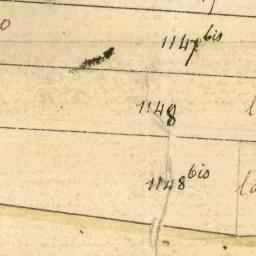 1147 bis
1148
1148 bis